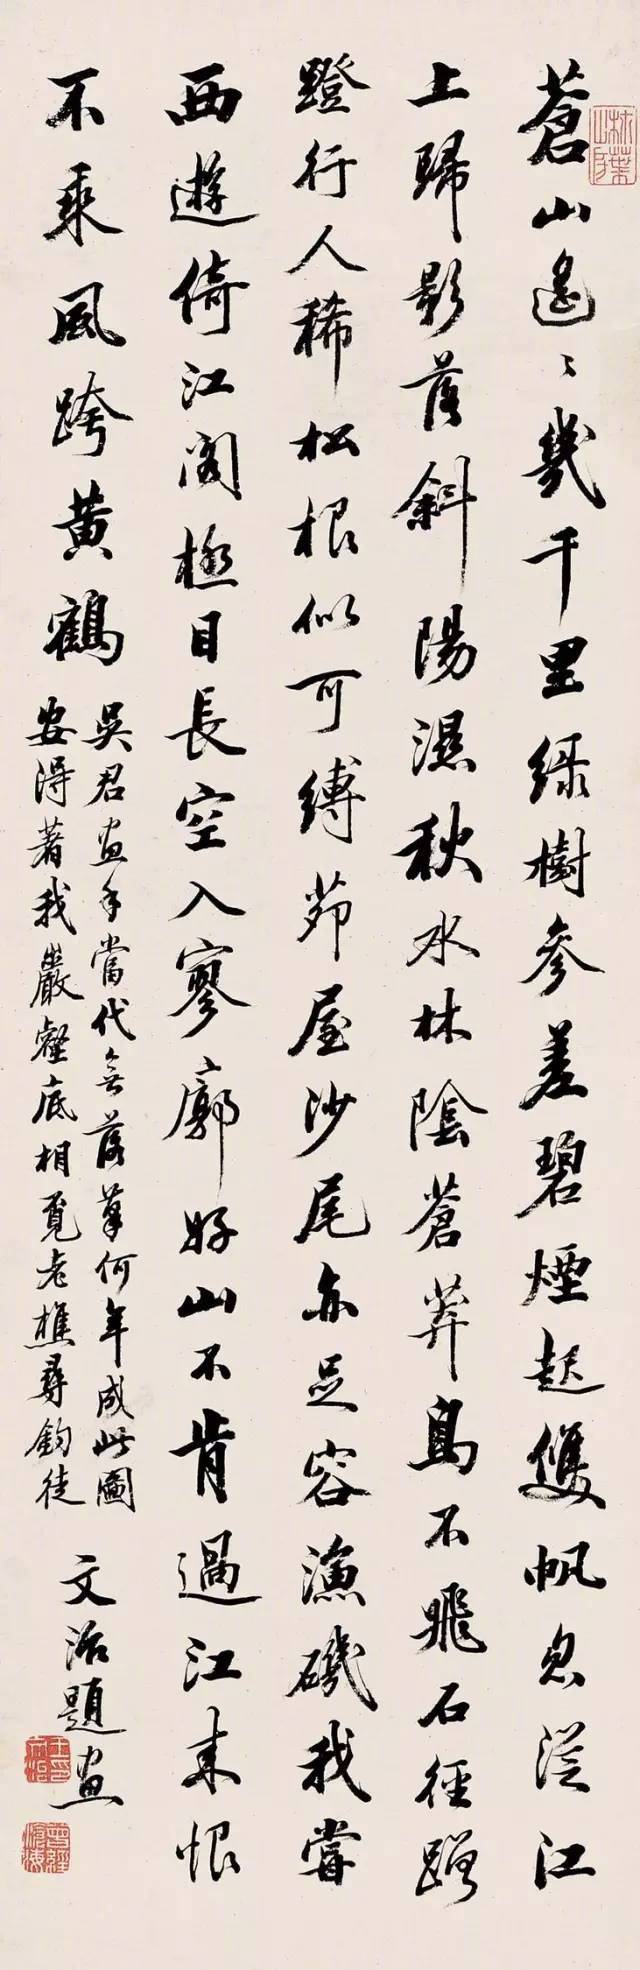 柿葉山房
蒼山遙〻幾千里綠樹參差碧煙起雙帆忽從江
上歸影落斜陽濕秋水林陰蒼莽鳥不飛石徑蹭
蹬行人稀松根似可縛茆屋沙尾亦足容漁磯我嘗
西遊倚江閣極目長空入寥廓好山不肯過江來恨
不乘風跨黃鶴
吳君畫手當代無落筆何年成此圖
安得著我巖壑底相覓老樵尋釣徒
文治題畫
王文治印
曾經滄海